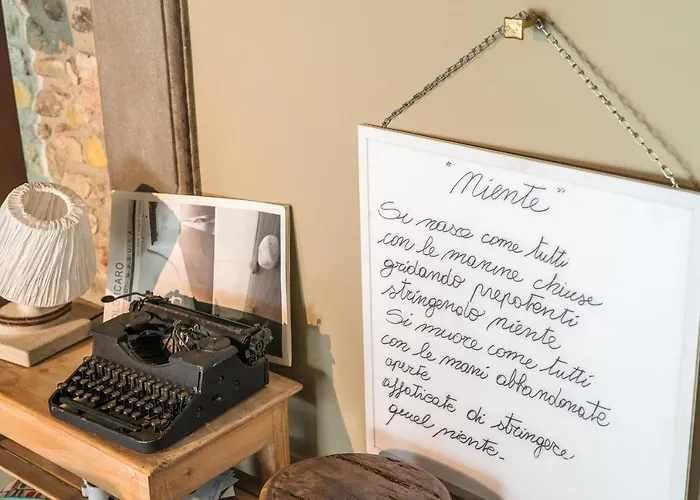 "Niente"
Si nasce come tutti
con le manine chiuse
gridando prepotenti
stringendo niente
Si muore come tutti
con le mani abbandonate
aperte
affaticate di stringere
quel niente.